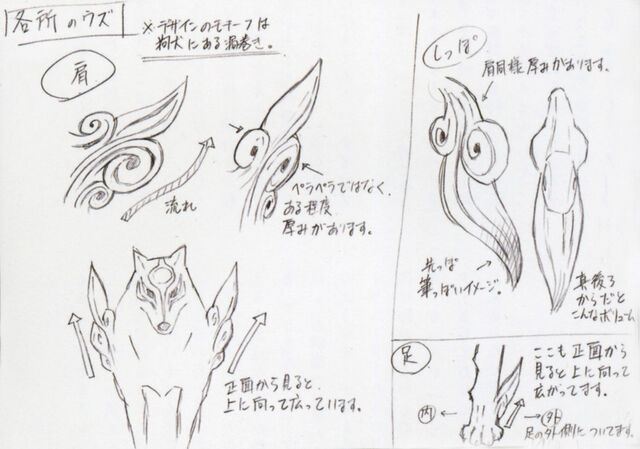 各所のウズ
※デザインのモチーフは
狛犬にある渦巻き。
肩
流れ
ペラペラではなく、
ある程度
厚みがあります。
正面から見ると、
上に向って広っています。
しっぽ
肩同様厚みがあります。
先っぽ
筆っぽいイメージ。
真後ろ
からだと
こんなボリューム
足
ここも正面から
見ると上に向って
広がってます。
内 ← → 外
足の外側についてます。